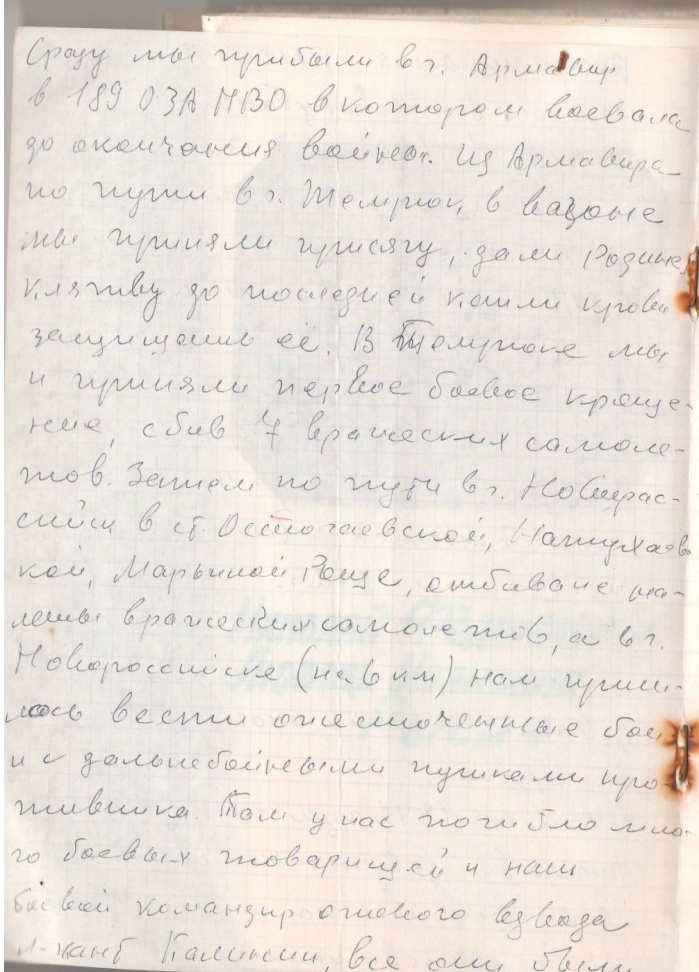 Сразу мы прибыли в г. Армавир
в 189 ОЗА ПВО в котором воевала
до окончания войны. Из Армавира
по пути в г. Темрюк, в вагоне
мы приняли присягу, дали Родине
клятву до последней капли крови
защищать её. В Темрюке мы
и приняли первое боевое креще-
ние, сбив 7 вражеских самоле-
тов. Затем по пути в г. Новорос-
сийск в ст. Остогаевской, Натухаевс
кой, Марьиной Роще, отбивали на-
леты вражеских самолетов, а в г.
Новороссийске (на 8 км) нам приш-
лось вести ожесточенные бои
и с дальнебойными пушками про-
тивника. Там у нас погибло мно-
го боевых товарищей и наш
боевой командир огневого взвода
л-жант Калинин, все они были